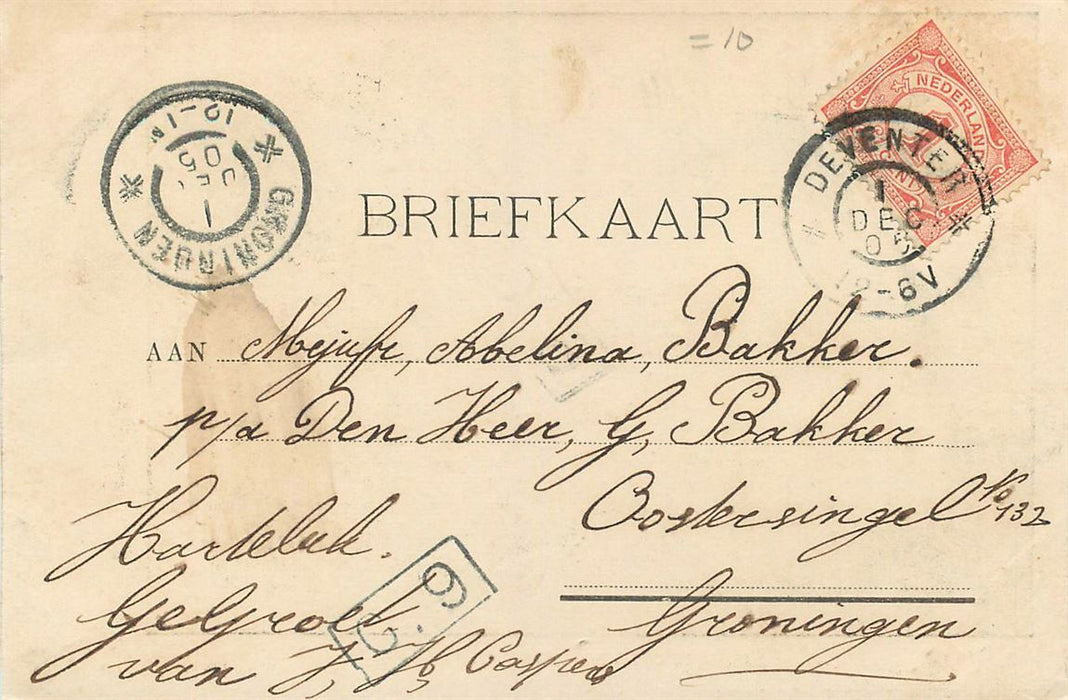 = 10
NEDERLAND
1
DEVENTER
1
DEC
05
12-6V
GRONINGEN
12-1N
DEC
05
1
BRIEFKAART
AAN Mejufr, Abelina, Bakker.
p/a Den Heer, G, Bakker
Oostersingel No 132
Groningen
Hartelijk.
Gegroet.
van J, H, Caspers
C. 9